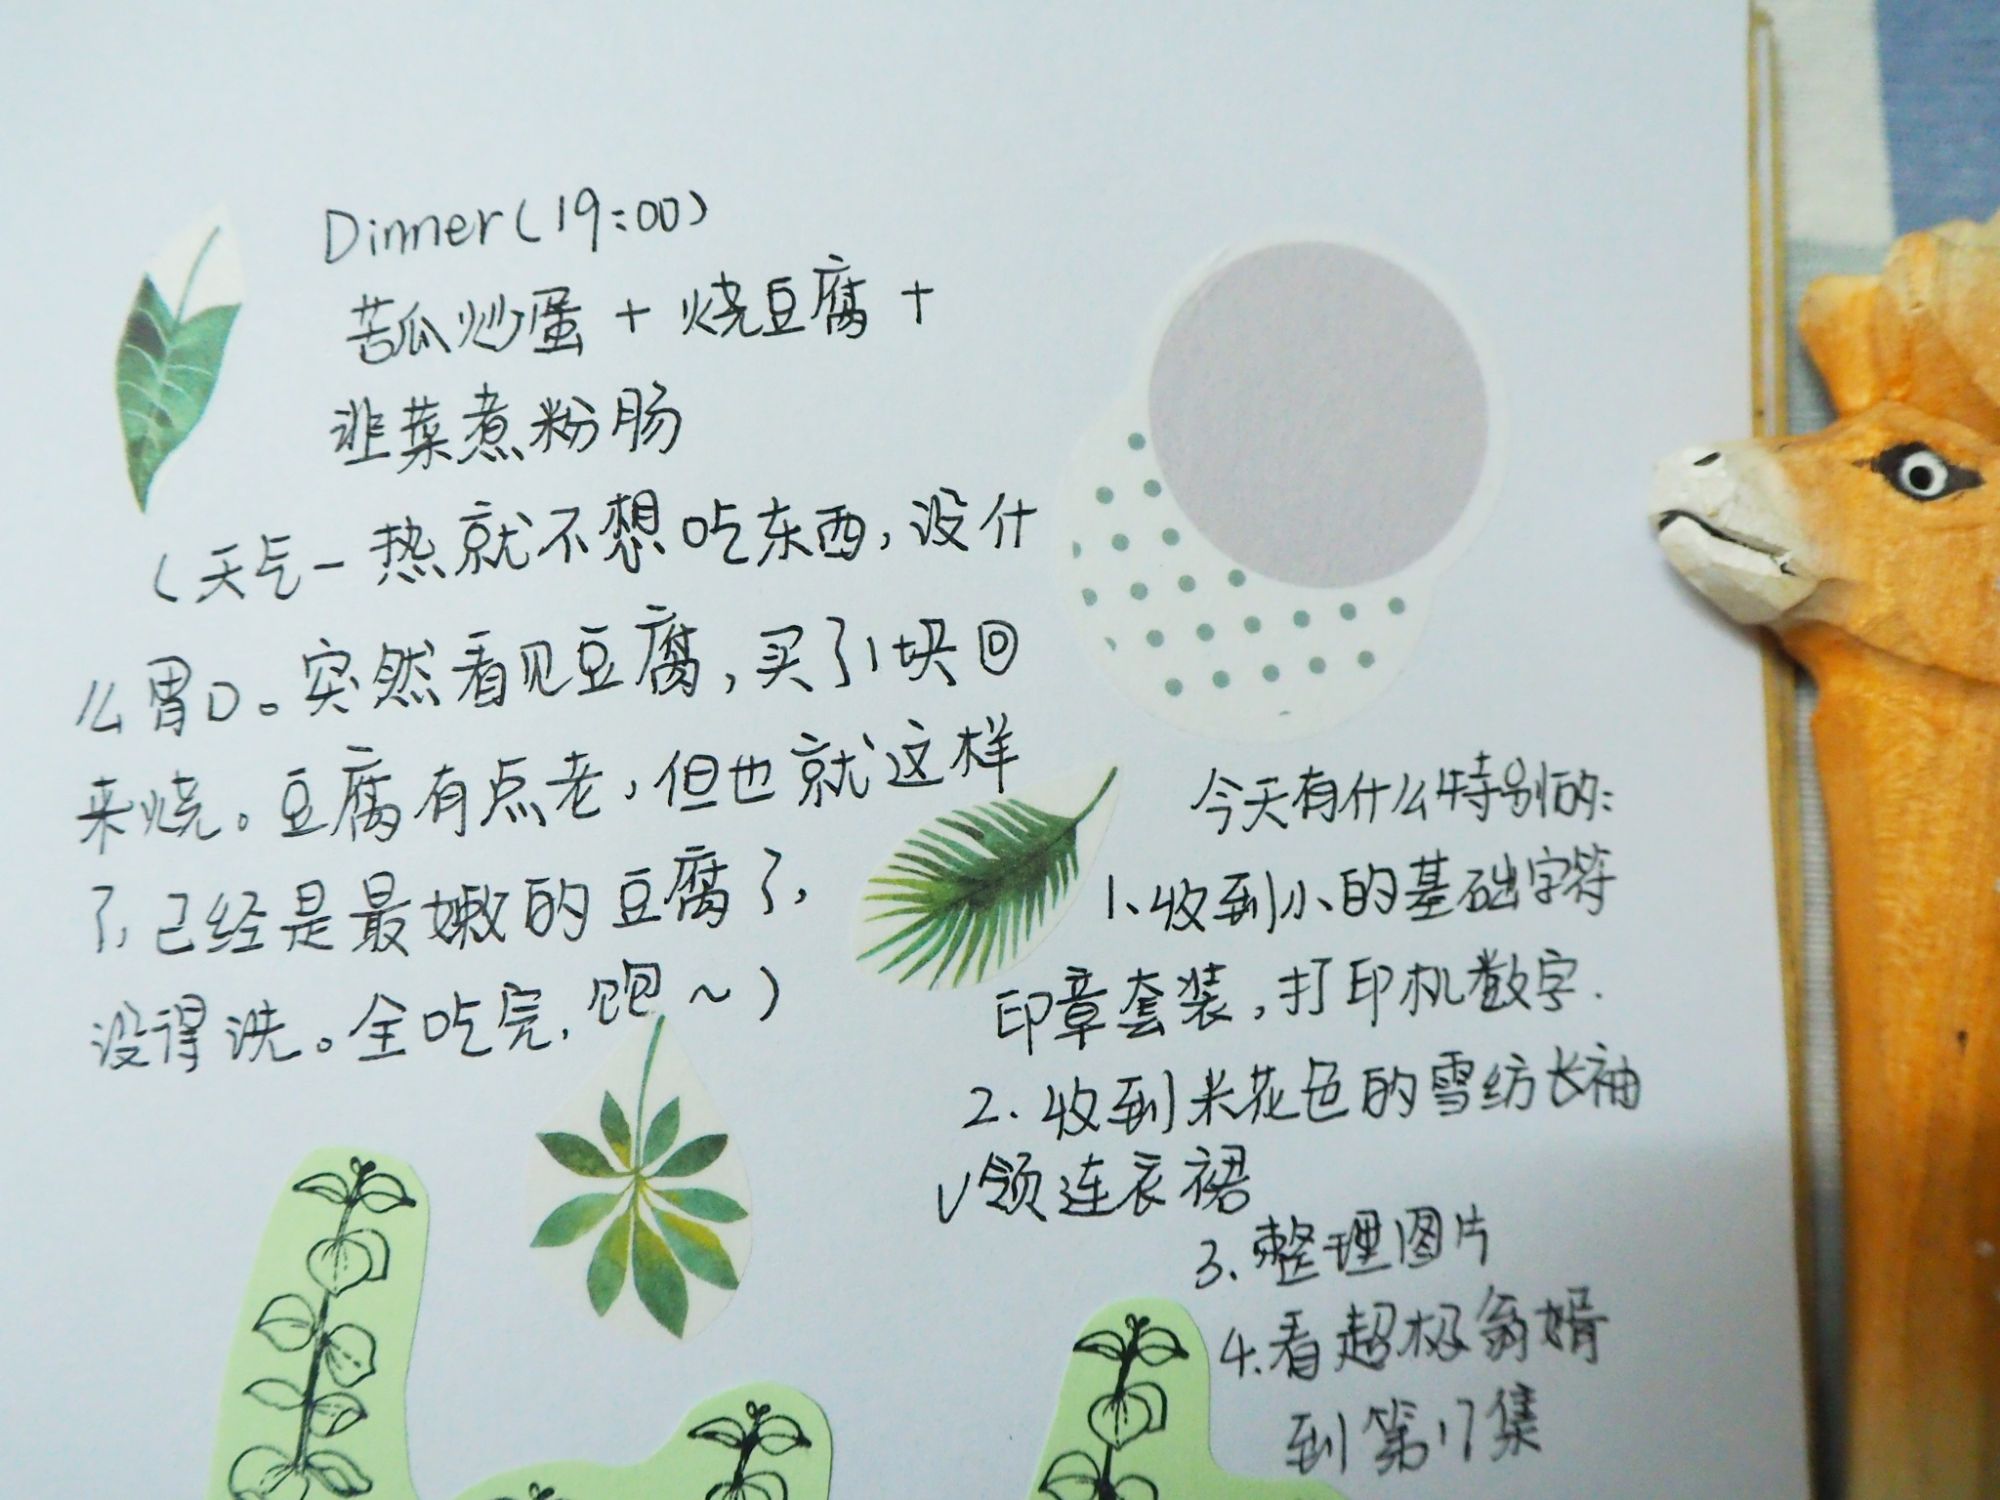 Dinner(19:00)
苦瓜炒蛋+烧豆腐+
韭菜煮粉肠
(天气一热就不想吃东西,没什
么胃口。突然看见豆腐,买了1块回
来烧。豆腐有点老,但也就这样
了,已经是最嫩的豆腐了,
没得洗。全吃完,饱~)
今天有什么特别的:
1、收到小的基础字符
印章套装,打印机数字.
2.收到米花色的雪纺长袖
V领连衣裙
3.整理图片
4.看超极翁婿
到第17集